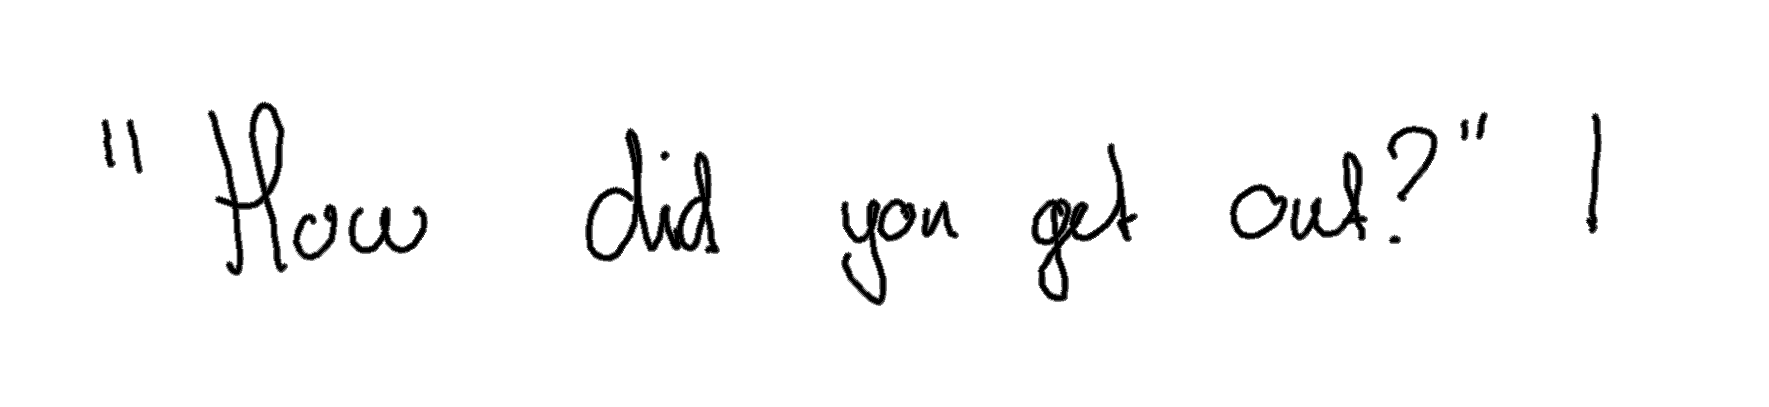 "How did you get out?" I